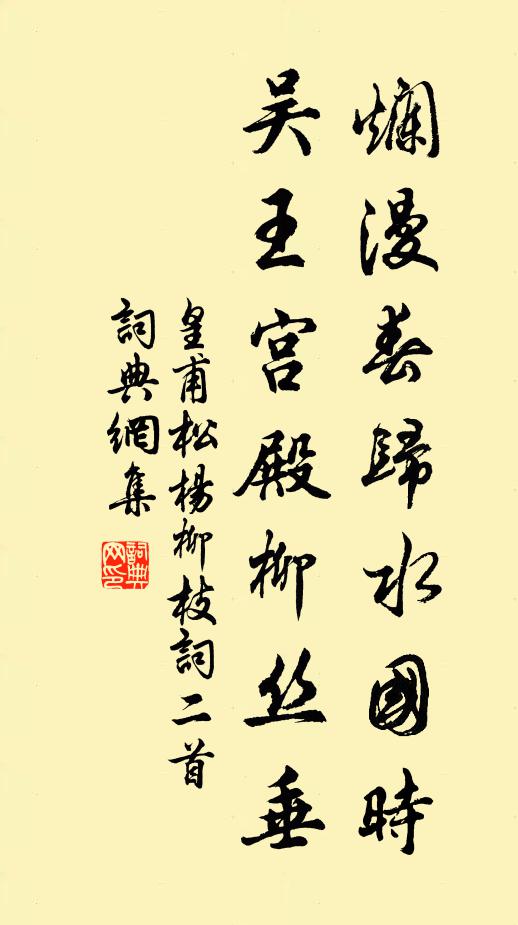 爛漫春歸水國時
吴王宫殿柳丝垂
皇甫松楊柳枝詞二首
詞典網集
詞典网印